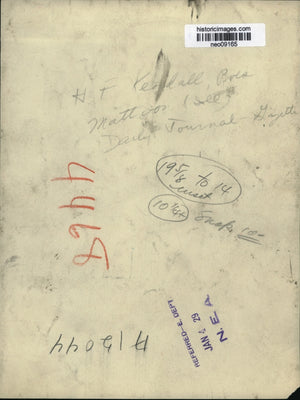 historicimages.com
neo09165
H F Kendall, Bors
Mattoon (Ill)
Daily Journal Gazette
19 5/8 to 14
inset
4468
REFERRED-E. DEPT.
JAN 4 29
N. E. A.
A13044